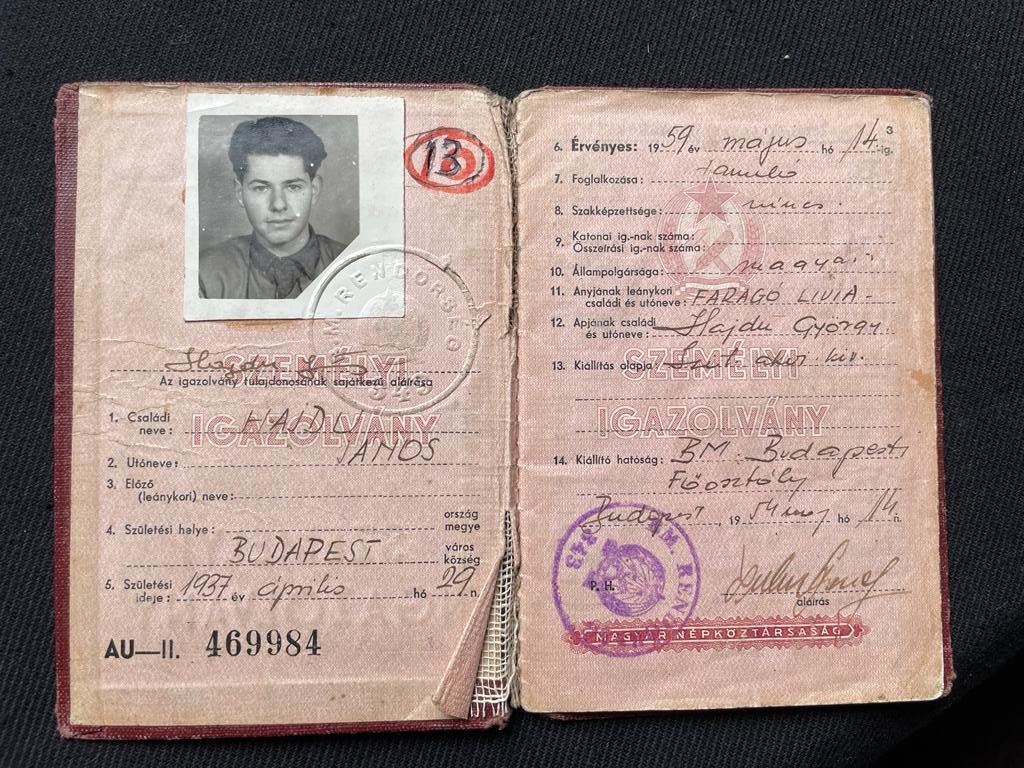 13
Hajdu János
Az igazolvány tulajdonosának sajátkezű aláírása
SZEMÉLYI
IGAZOLVÁNY
1. Családi neve: HAJDU
2. Utóneve: JÁNOS
3. Előző (leánykori) neve:
4. Születési helye: ország megye
BUDAPEST város község
5. Születési ideje: 1937 év április hó 29. n.
AU—II. 469984
M. RENDŐRSÉG
543
3
6. Érvényes: 1959 év május hó 14.-ig.
7. Foglalkozása: tanuló
8. Szakképzettsége: nincs.
9. Katonai ig.-nak száma:
Összeírási ig.-nak száma:
10. Állampolgársága: magyar
11. Anyjának leánykori családi és utóneve: FARAGÓ LIVIA.
12. Apjának családi és utóneve: Hajdu György.
13. Kiállítás alapja: kiv.
SZEMÉLYI
IGAZOLVÁNY
14. Kiállító hatóság: BM. Budapesti
Főosztály
Budapest, 1954 máj hó 14. n.
P. H.
aláírás
MAGYAR NÉPKÖZTÁRSASÁG